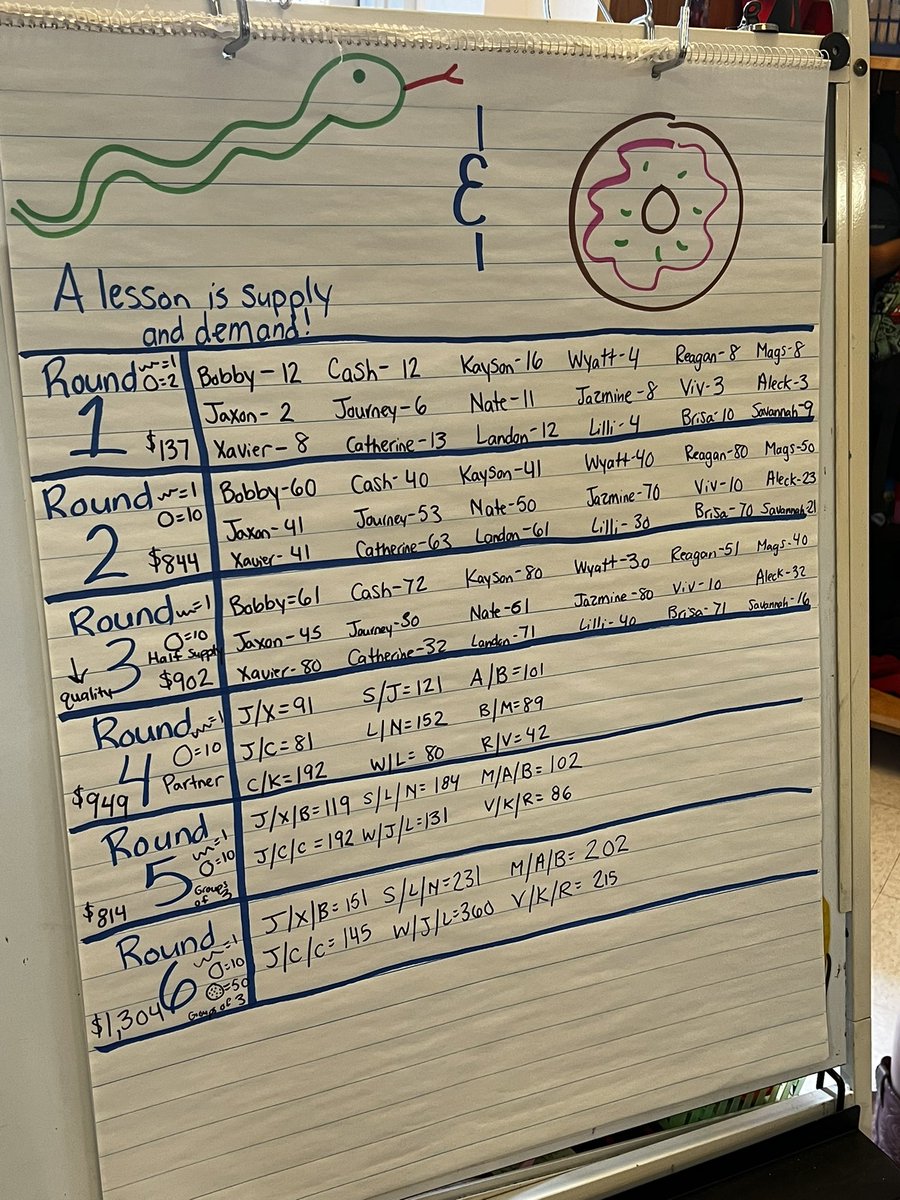 &
A lesson is supply
and demand!
Round 1 ~=1 O=2 $137
Bobby-12 Cash-12 Kayson-16 Wyatt-4 Reagan-8 Mags-8
Jaxon-2 Journey-6 Nate-11 Jazmine-8 Viv-3 Aleck-3
Xavier-8 Catherine-13 Landon-12 Lilli-4 Brisa-10 Savannah-9
Round 2 ~=1 O=10 $844
Bobby-60 Cash-40 Kayson-41 Wyatt-40 Reagan-80 Mags-50
Jaxon-41 Journey-53 Nate-50 Jazmine-70 Viv-10 Aleck-23
Xavier-41 Catherine-63 Landon-61 Lilli-30 Brisa-70 Savannah-21
Round 3 ~=1 O=10 Half Supply ↓ quality $902
Bobby=61 Cash-72 Kayson-80 Wyatt-30 Reagan-51 Mags-40
Jaxon-45 Journey-30 Nate-61 Jazmine-80 Viv-10 Aleck-32
Xavier-80 Catherine-32 Landon-71 Lilli-40 Brisa-71 Savannah-16
Round 4 ~=1 O=10 Partner $949
J/X=91 S/J=121 A/B=101
J/C=81 L/N=152 B/M=89
C/K=192 W/L=80 R/V=42
Round 5 ~=1 O=10 Groups of 3 $814
J/X/B=119 S/L/N=184 M/A/B=102
J/C/C=192 W/J/L=131 V/K/R=86
Round 6 ~=1 O=10 =50 Groups of 3 $1,304
J/X/B=151 S/L/N=231 M/A/B=202
J/C/C=145 W/J/L=360 V/K/R=215